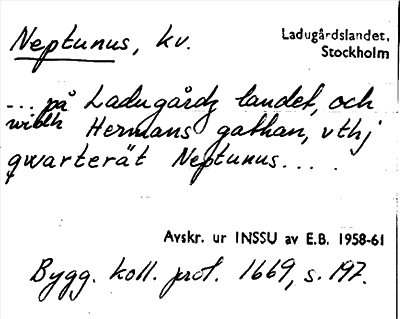 Neptunus, kv.
Ladugårdslandet,
Stockholm
... på Ladugårdz landet, och
widh Hermans gathan, vthj
qwarterät Neptunus....
Avskr. ur INSSU av E.B. 1958-61
Bygg. koll. prot. 1669, s. 197.